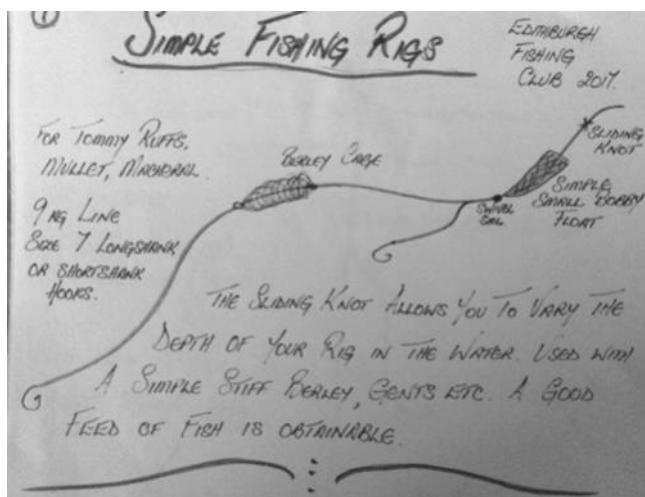 ①
SIMPLE FISHING RIGS
EDITHBURGH
FISHING
CLUB 2017.
FOR TOMMY RUFFS,
MULLET, MACKRAL.
9 KG LINE
SIZE 7 LONGSHANK
OR SHORTSHANK
HOOKS.
BERLEY CAGE
SLIDING
KNOT
SIMPLE
SMALL BOBBY
FLOAT
SWIVEL
THE SLIDING KNOT ALLOWS YOU TO VARY THE
DEPTH OF YOUR RIG IN THE WATER. USED WITH
A SIMPLE STIFF BERLEY, GENTS ETC. A GOOD
FEED OF FISH IS OBTAINABLE.